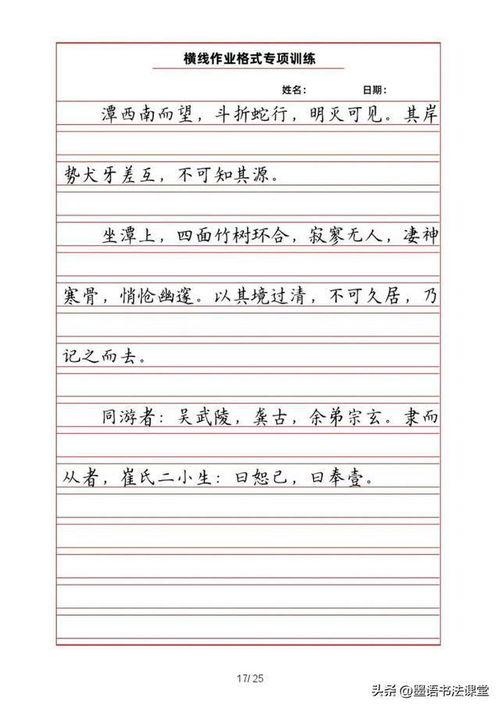 横线作业格式专项训练
姓名： 日期：
潭西南而望，斗折蛇行，明灭可见。其岸
势犬牙差互，不可知其源。
坐潭上，四面竹树环合，寂寥无人，凄神
寒骨，悄怆幽邃。以其境过清，不可久居，乃
记之而去。
同游者：吴武陵，龚古，余弟宗玄。隶而
从者，崔氏二小生：曰恕己，曰奉壹。
17/25
头条@墨语书法课堂